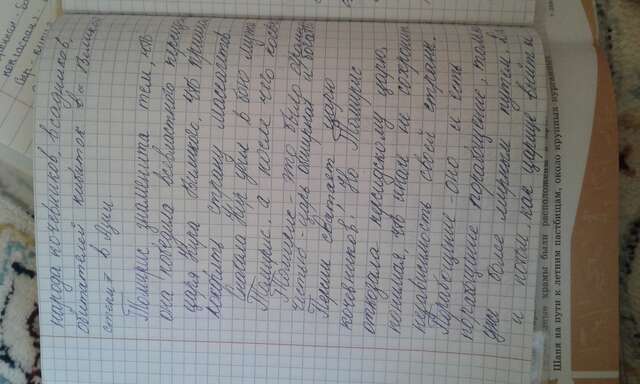 народа кочевников, всадников,
обитателей кибиток в Великой
степи в Азии.
Томирис знаменита тем, что
она победила всевластного персид
царя Кира Великого, что приш
покорять страну массагетов.
Сначала Кир убил в бою мужа
Томирис, а после чего посв
Томирис - это было огромн
честью - царь обширной и богат
Персии сватает царю
кочевников! Но Томирис
отказала персидскому царю,
понимая, что иначе не сохранит
независимость своей страны.
Порабощение - оно и есть
порабощение порабощение, только
уже более мирным путем. Да
и потом, как царице выйти
Шаня на пути к летним пастбищам, около крупных курганных
ные храмы были расположены в